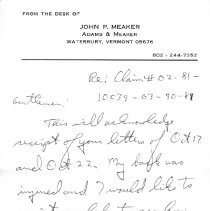 FROM THE DESK OF
JOHN P. MEAKER
ADAMS & MEAKER
WATERBURY, VERMONT 05676
802-244-7352
Re: Claim # 02-81-
10039-03-90-81
Gentlemen:
This will acknowledge
receipt of your letters of Oct 17
and Oct 22. My back was
injured and I would like to